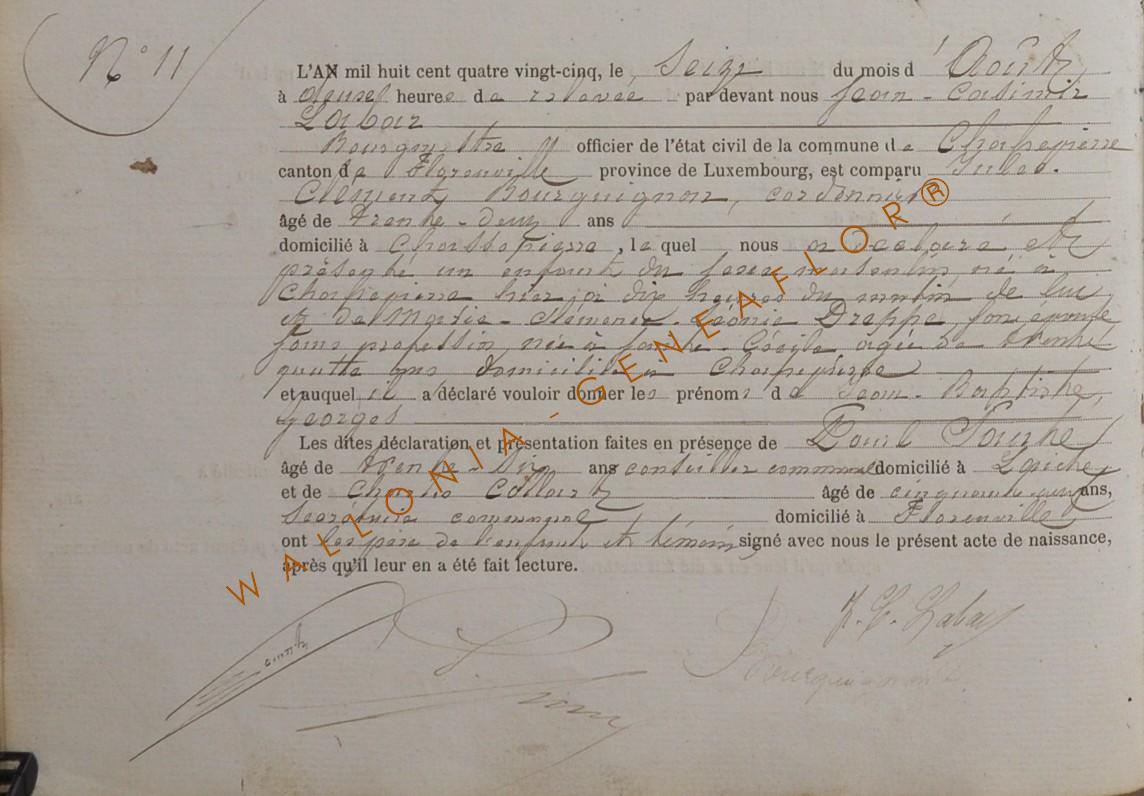 N° 11
L'AN mil huit cent quatre vingt-cinq, le seize du mois d'Août
à deux heures de relevée par devant nous Jean-Casimir
Labar
Bourgmestre officier de l'état civil de la commune de Chassepierre
canton de Florenville province de Luxembourg, est comparu Jules-
Clément Bourguignon, cordonnier
âgé de trente-deux ans
domicilié à Chassepierre, lequel nous a déclaré et
présenté un enfant du sexe masculin né à
Chassepierre hier à dix heures du matin de lui
et de Marie-Clémence-Léonie Drappe son épouse
sans profession, née à Sainte-Cécile âgée de trente
quatre ans domiciliée à Chassepierre
et auquel il a déclaré vouloir donner les prénoms de Jean-Baptiste,
Georges
Les dites déclaration et présentation faites en présence de
âgé de trente-six ans conseiller communal domicilié à Laiche
et de Charles Collart âgé de cinquante ans,
secrétaire communal domicilié à Florenville
ont les père de l'enfant et témoins signé avec nous le présent acte de naissance,
après qu'il leur en a été fait lecture.
J. C. Labar
Bourguignon
WALLONIA-GENEAFLOR®